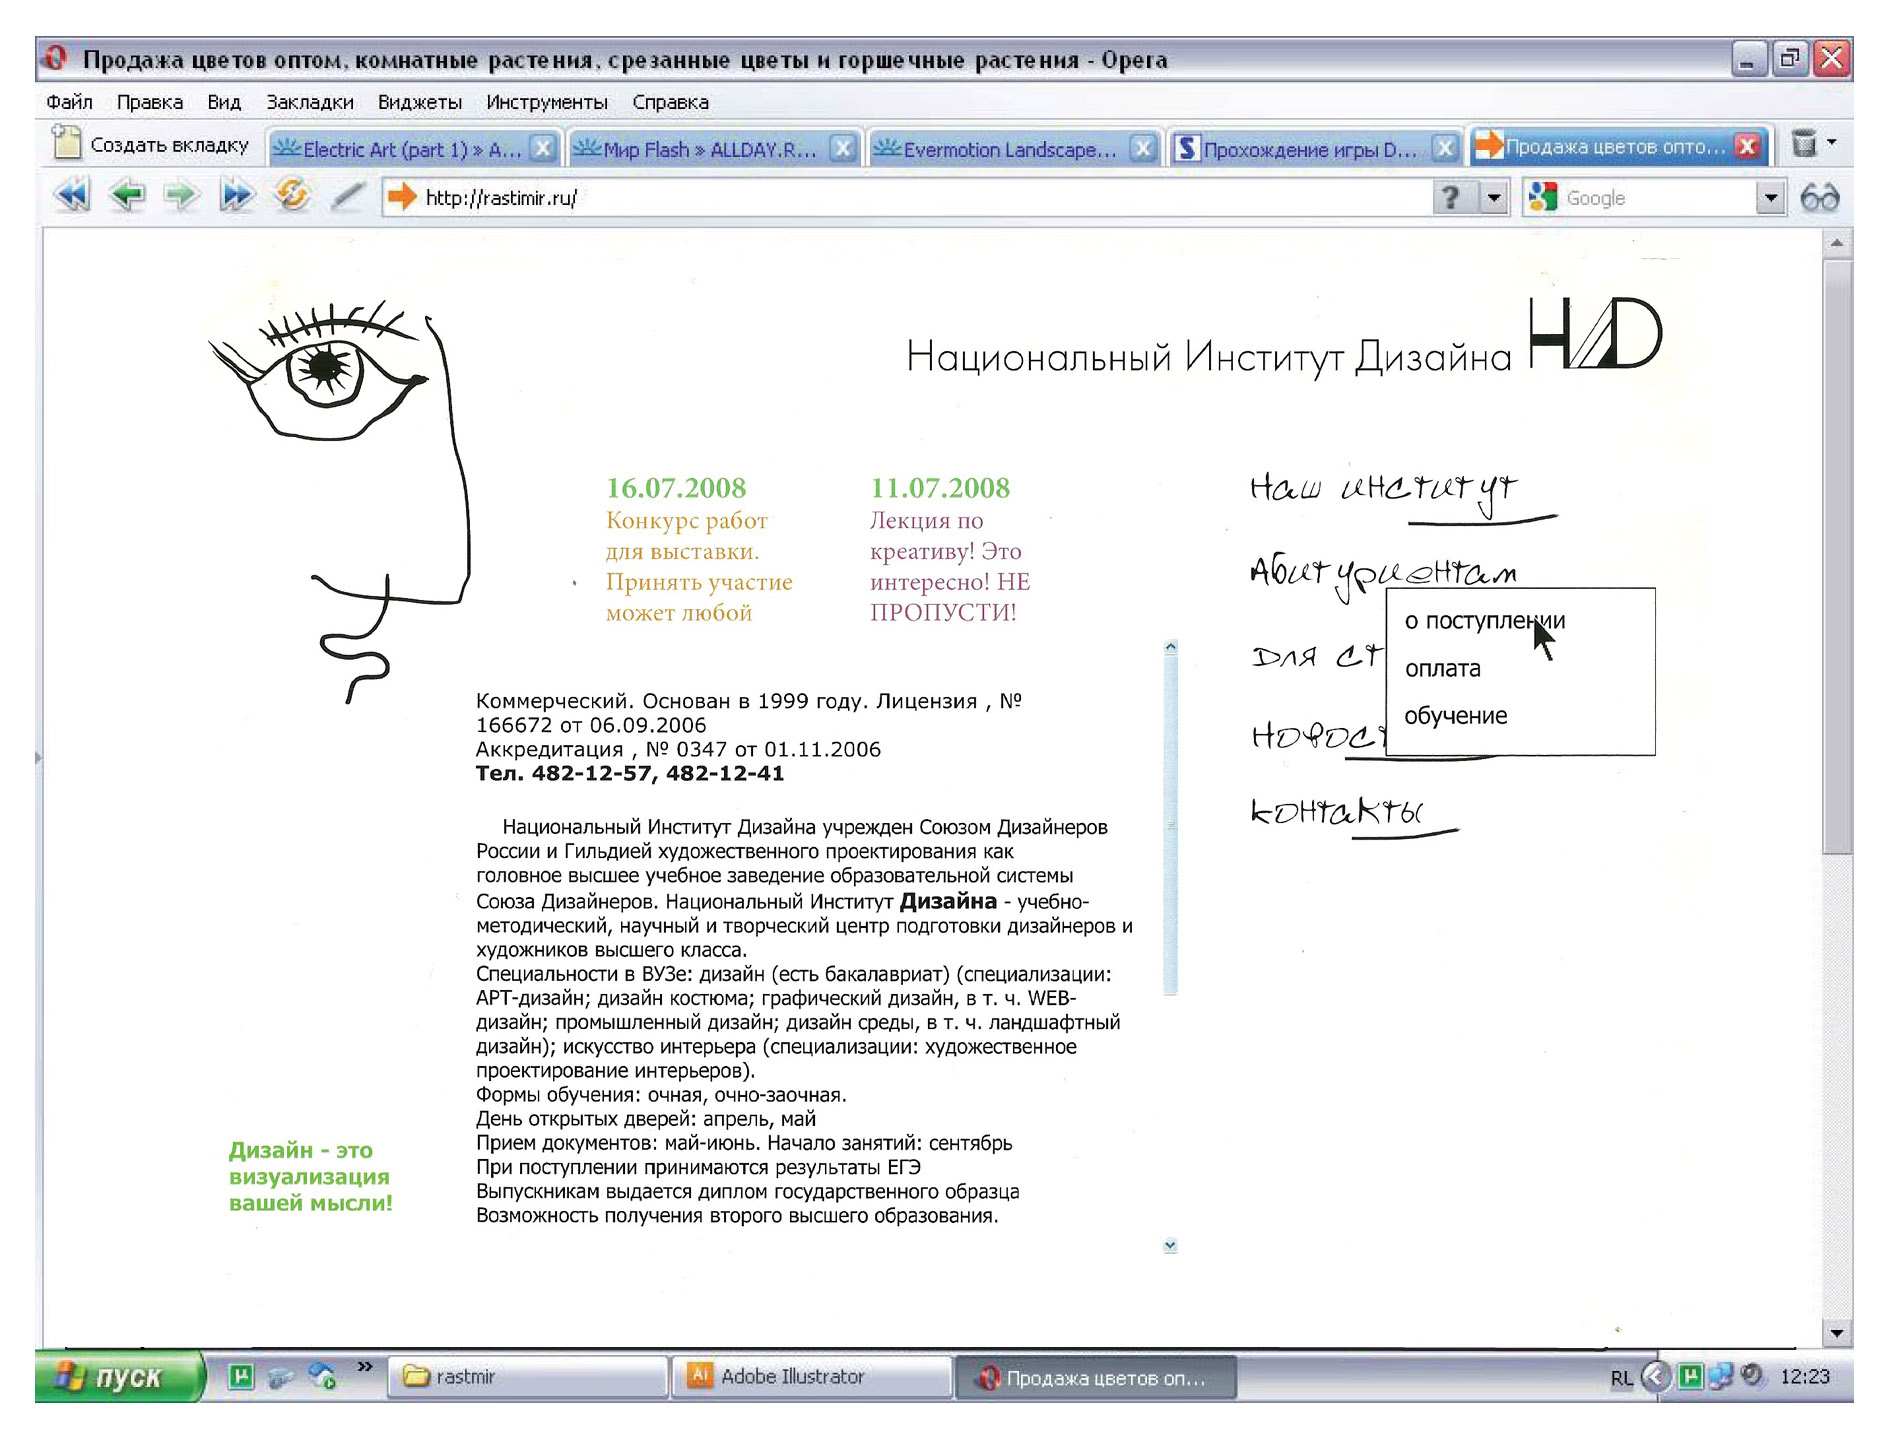 Продажа цветов оптом, комнатные растения, срезанные цветы и горшечные растения - Opera
Файл Правка Вид Закладки Виджеты Инструменты Справка
Создать вкладку Electric Art (part 1) » A... Мир Flash » ALLDAY.R... Evermotion Landscape... Прохождение игры D... Продажа цветов опто...
http://rastimir.ru/ ? Google
Национальный Институт Дизайна НИD
16.07.2008
Конкурс работ
для выставки.
Принять участие
может любой
11.07.2008
Лекция по
креативу! Это
интересно! НЕ
ПРОПУСТИ!
Наш институт
Абитуриентам
о поступлении
оплата
обучение
Для ст
Новост
Контакты
Коммерческий. Основан в 1999 году. Лицензия , №
166672 от 06.09.2006
Аккредитация , № 0347 от 01.11.2006
Тел. 482-12-57, 482-12-41
Национальный Институт Дизайна учрежден Союзом Дизайнеров
России и Гильдией художественного проектирования как
головное высшее учебное заведение образовательной системы
Союза Дизайнеров. Национальный Институт Дизайна - учебно-
методический, научный и творческий центр подготовки дизайнеров и
художников высшего класса.
Специальности в ВУЗе: дизайн (есть бакалавриат) (специализации:
АРТ-дизайн; дизайн костюма; графический дизайн, в т. ч. WEB-
дизайн; промышленный дизайн; дизайн среды, в т. ч. ландшафтный
дизайн); искусство интерьера (специализации: художественное
проектирование интерьеров).
Формы обучения: очная, очно-заочная.
День открытых дверей: апрель, май
Прием документов: май-июнь. Начало занятий: сентябрь
При поступлении принимаются результаты ЕГЭ
Выпускникам выдается диплом государственного образца
Возможность получения второго высшего образования.
Дизайн - это
визуализация
вашей мысли!
пуск » rastmir Adobe Illustrator Продажа цветов оп... RL 12:23